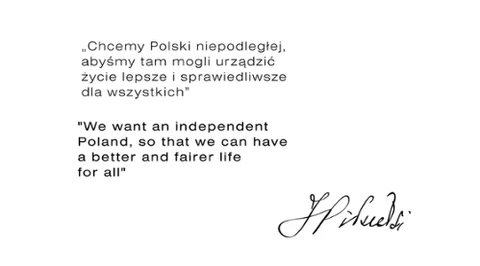 „Chcemy Polski niepodległej,
abyśmy tam mogli urządzić
życie lepsze i sprawiedliwsze
dla wszystkich”
"We want an independent
Poland, so that we can have
a better and fairer life
for all"
J Piłsudski